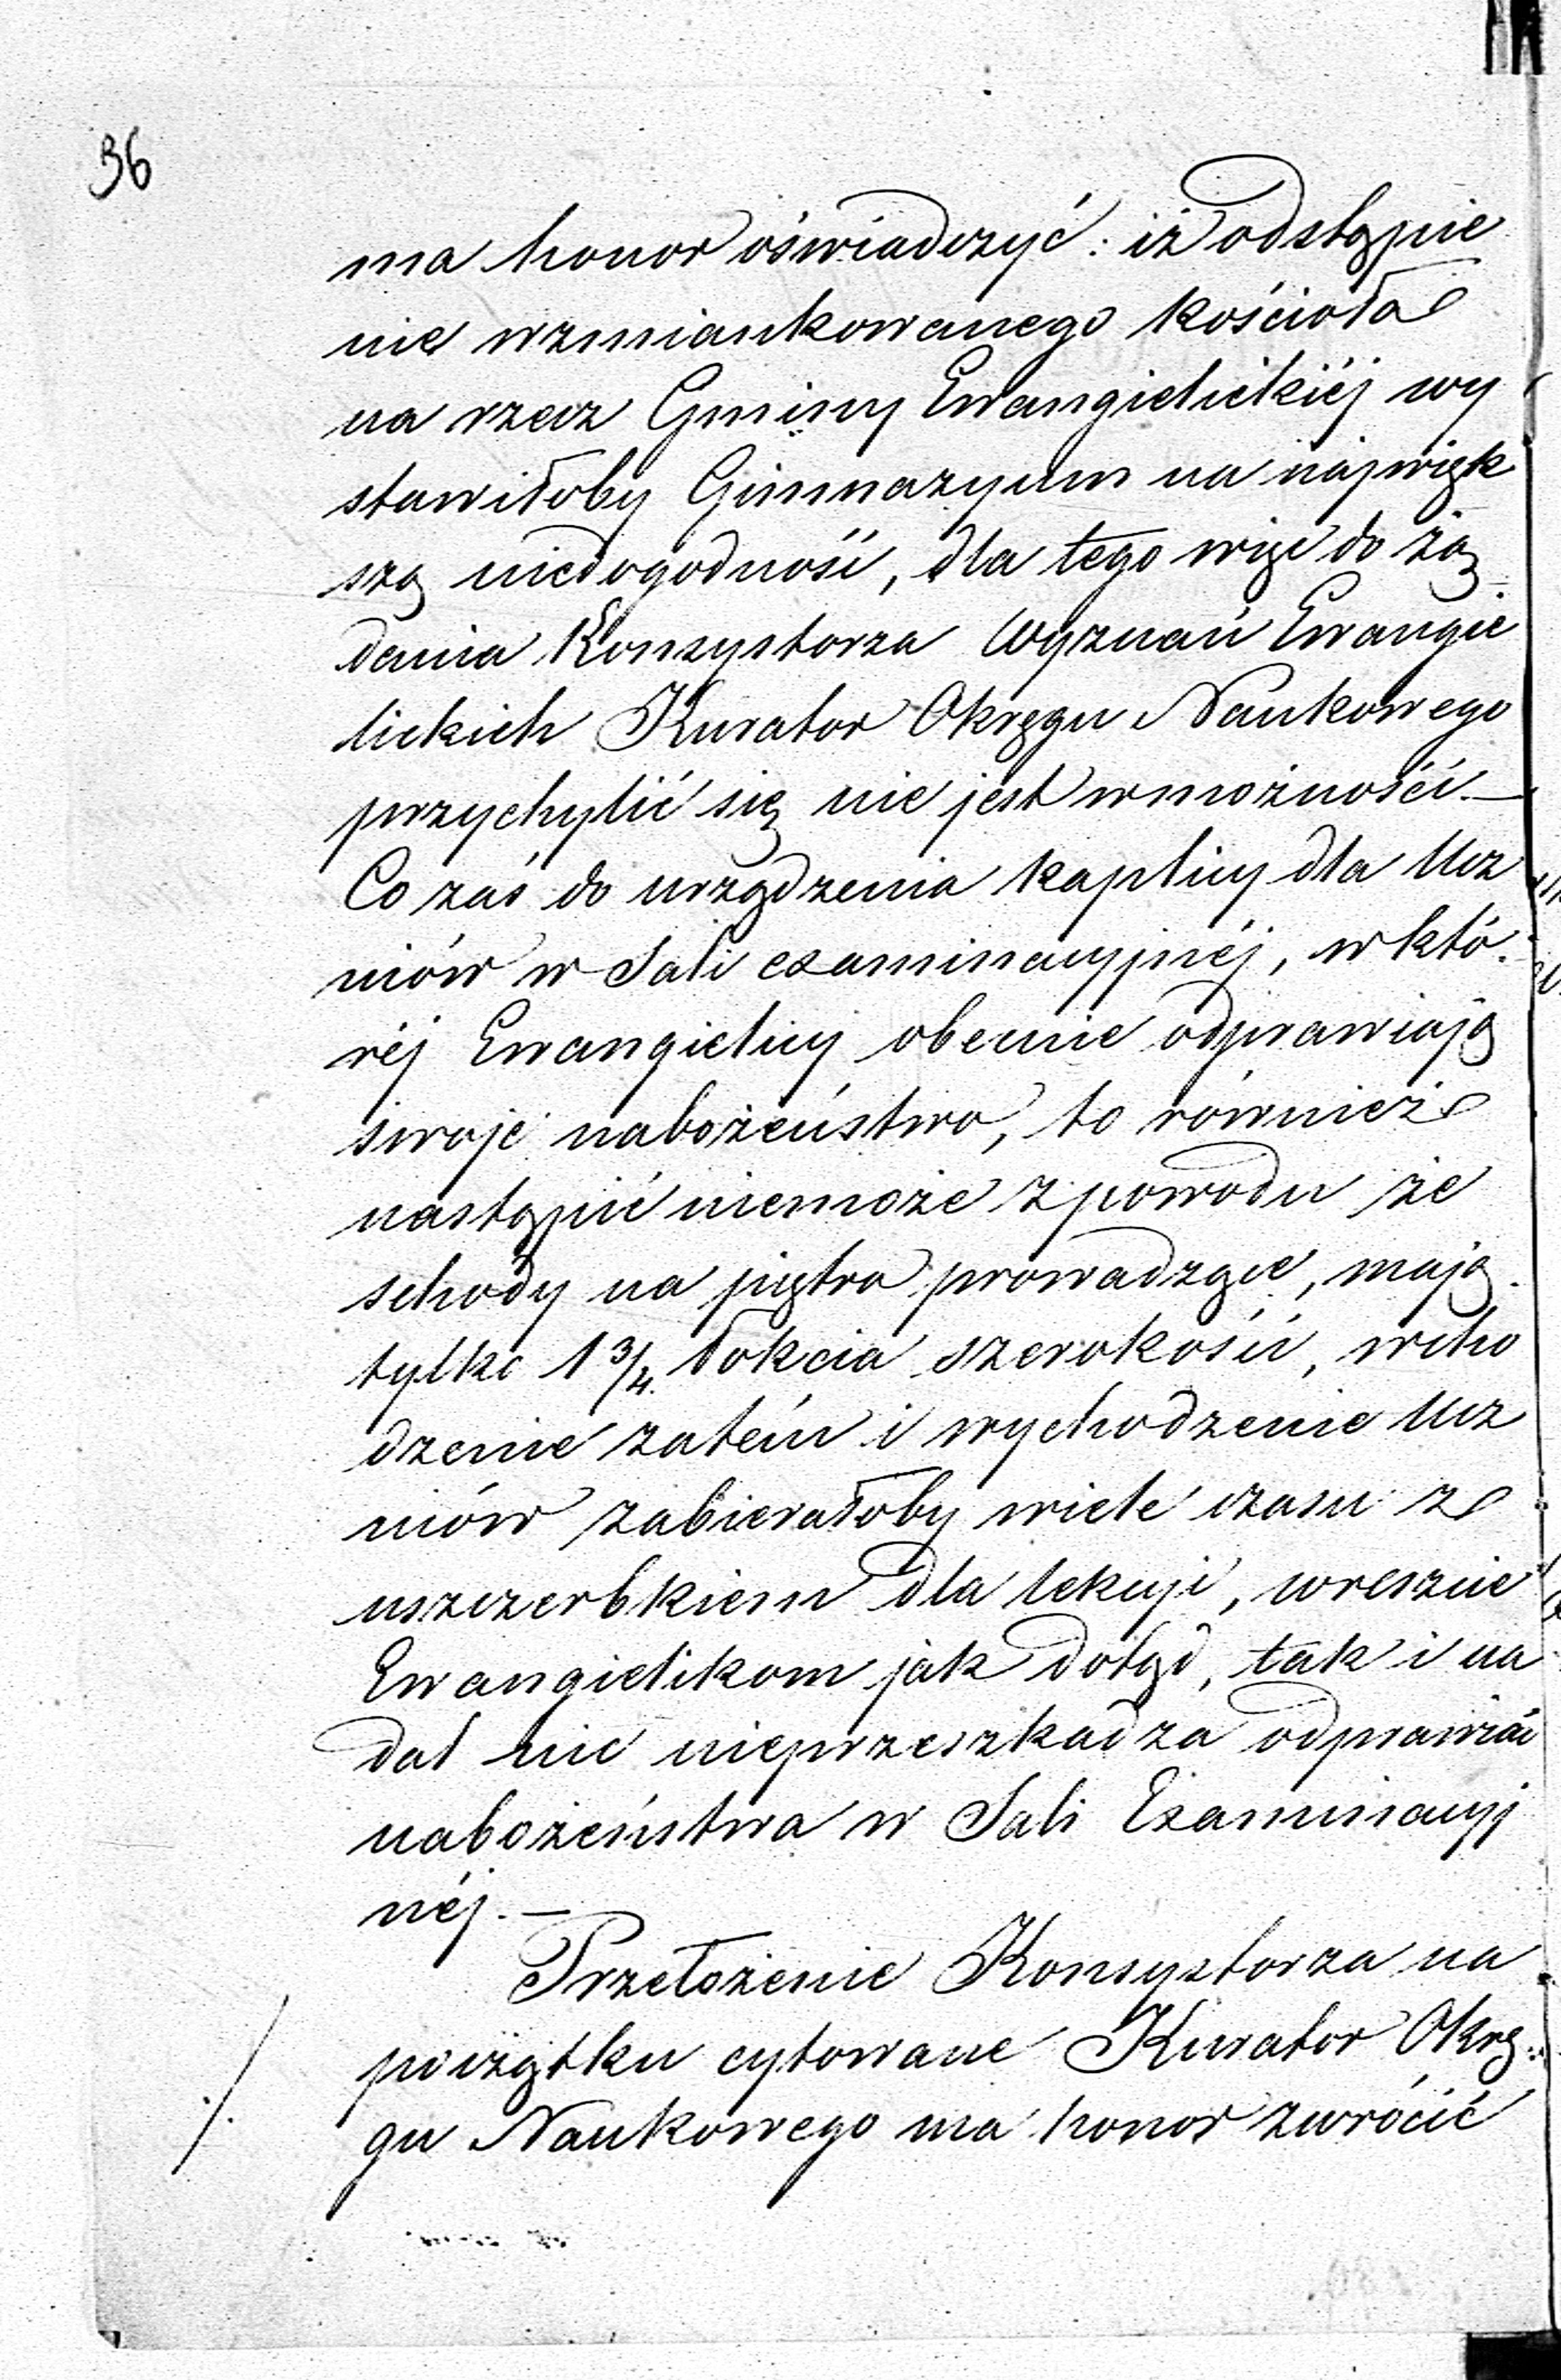 36
ma honor oświadczyć: iż odstąpie
nie wzmiankowanego kościoła
na rzecz Gminy Ewangielickiéj wy
stawiłoby Gimnazyum na najwięk
szą niedogodność, dla tego więc do żą
dania Konsystorza Wyznań Ewangie
lickich Kurator Okręgu Naukowego
przychylić się nie jest w możności.—
Co zaś do urządzenia kaplicy dla Ucz
niów w Sali examinacyjnéj, w któ
réj Ewangielicy obecnie odprawiają
swoje nabożeństwo, to również
nastąpić niemoże z powodu że
schody na piętro prowadzące, mają
tylko 1 3/4 łokcia szerokości, wcho
dzenie zatém i wychodzenie Ucz
niów zabierałoby wiele czasu z
uszczerbkiem dla lekcyi, wreszcie
Ewangielikom jak dotąd, tak i na
dal nic nieprzeszkadza odprawiać
nabożeństwa w Sali Examinacyj
néj.—
Przełożenie Konsystorza na
początku cytowane Kurator Okrę
gu Naukowego ma honor zwrócić
./.